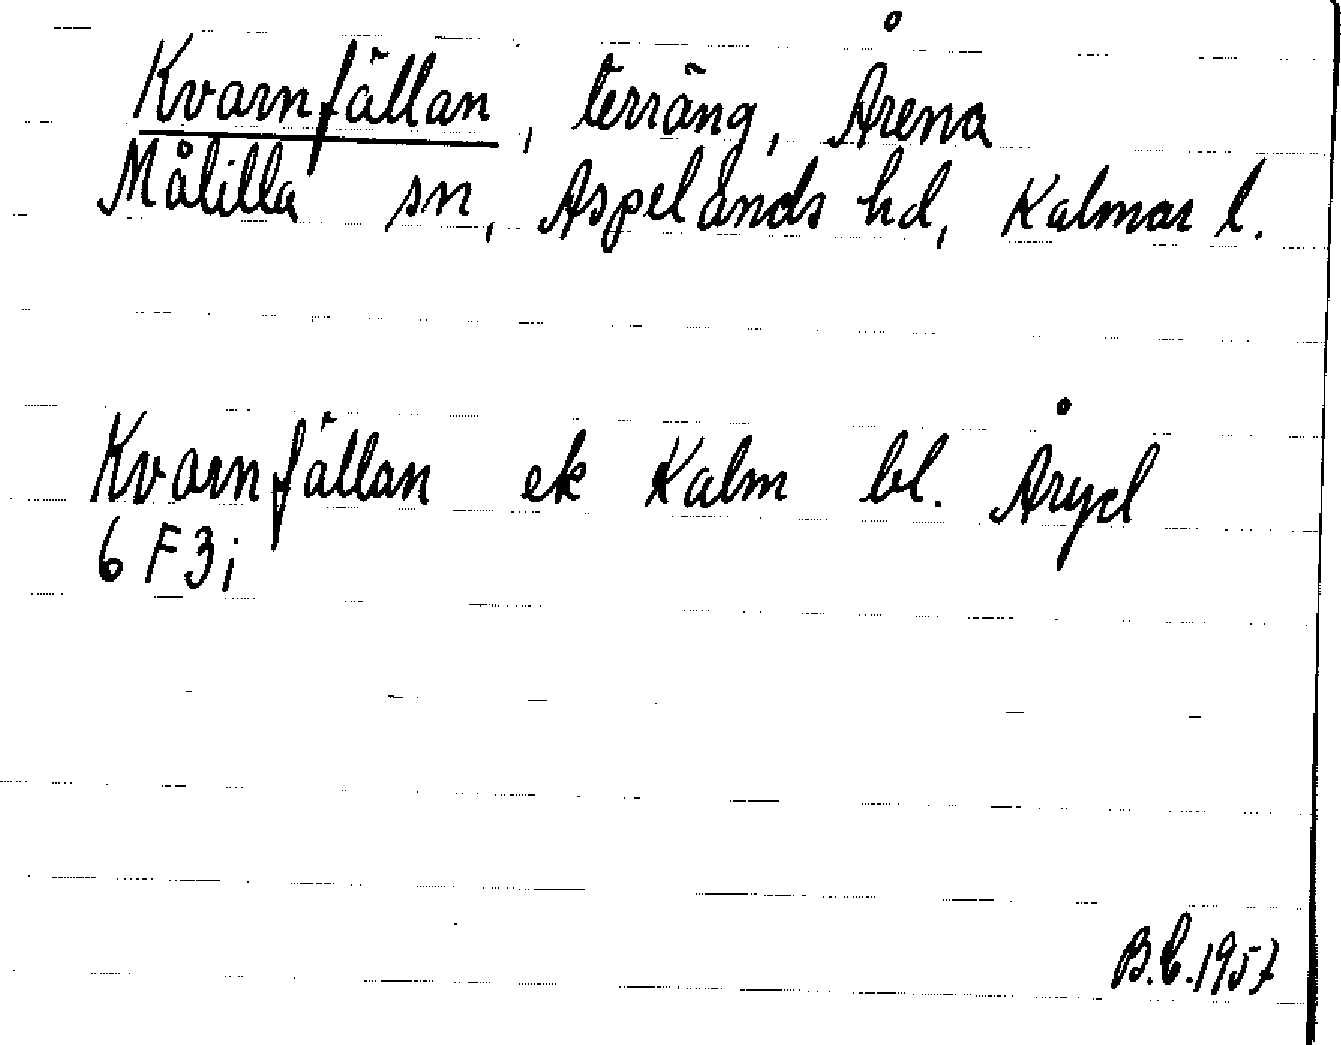 Kvarnfällan, terräng, Årena
Målilla sn, Aspelands hd, Kalmar l.
Kvarnfällan ek Kalm bl. Åryd
6 F3i
B.C.1957